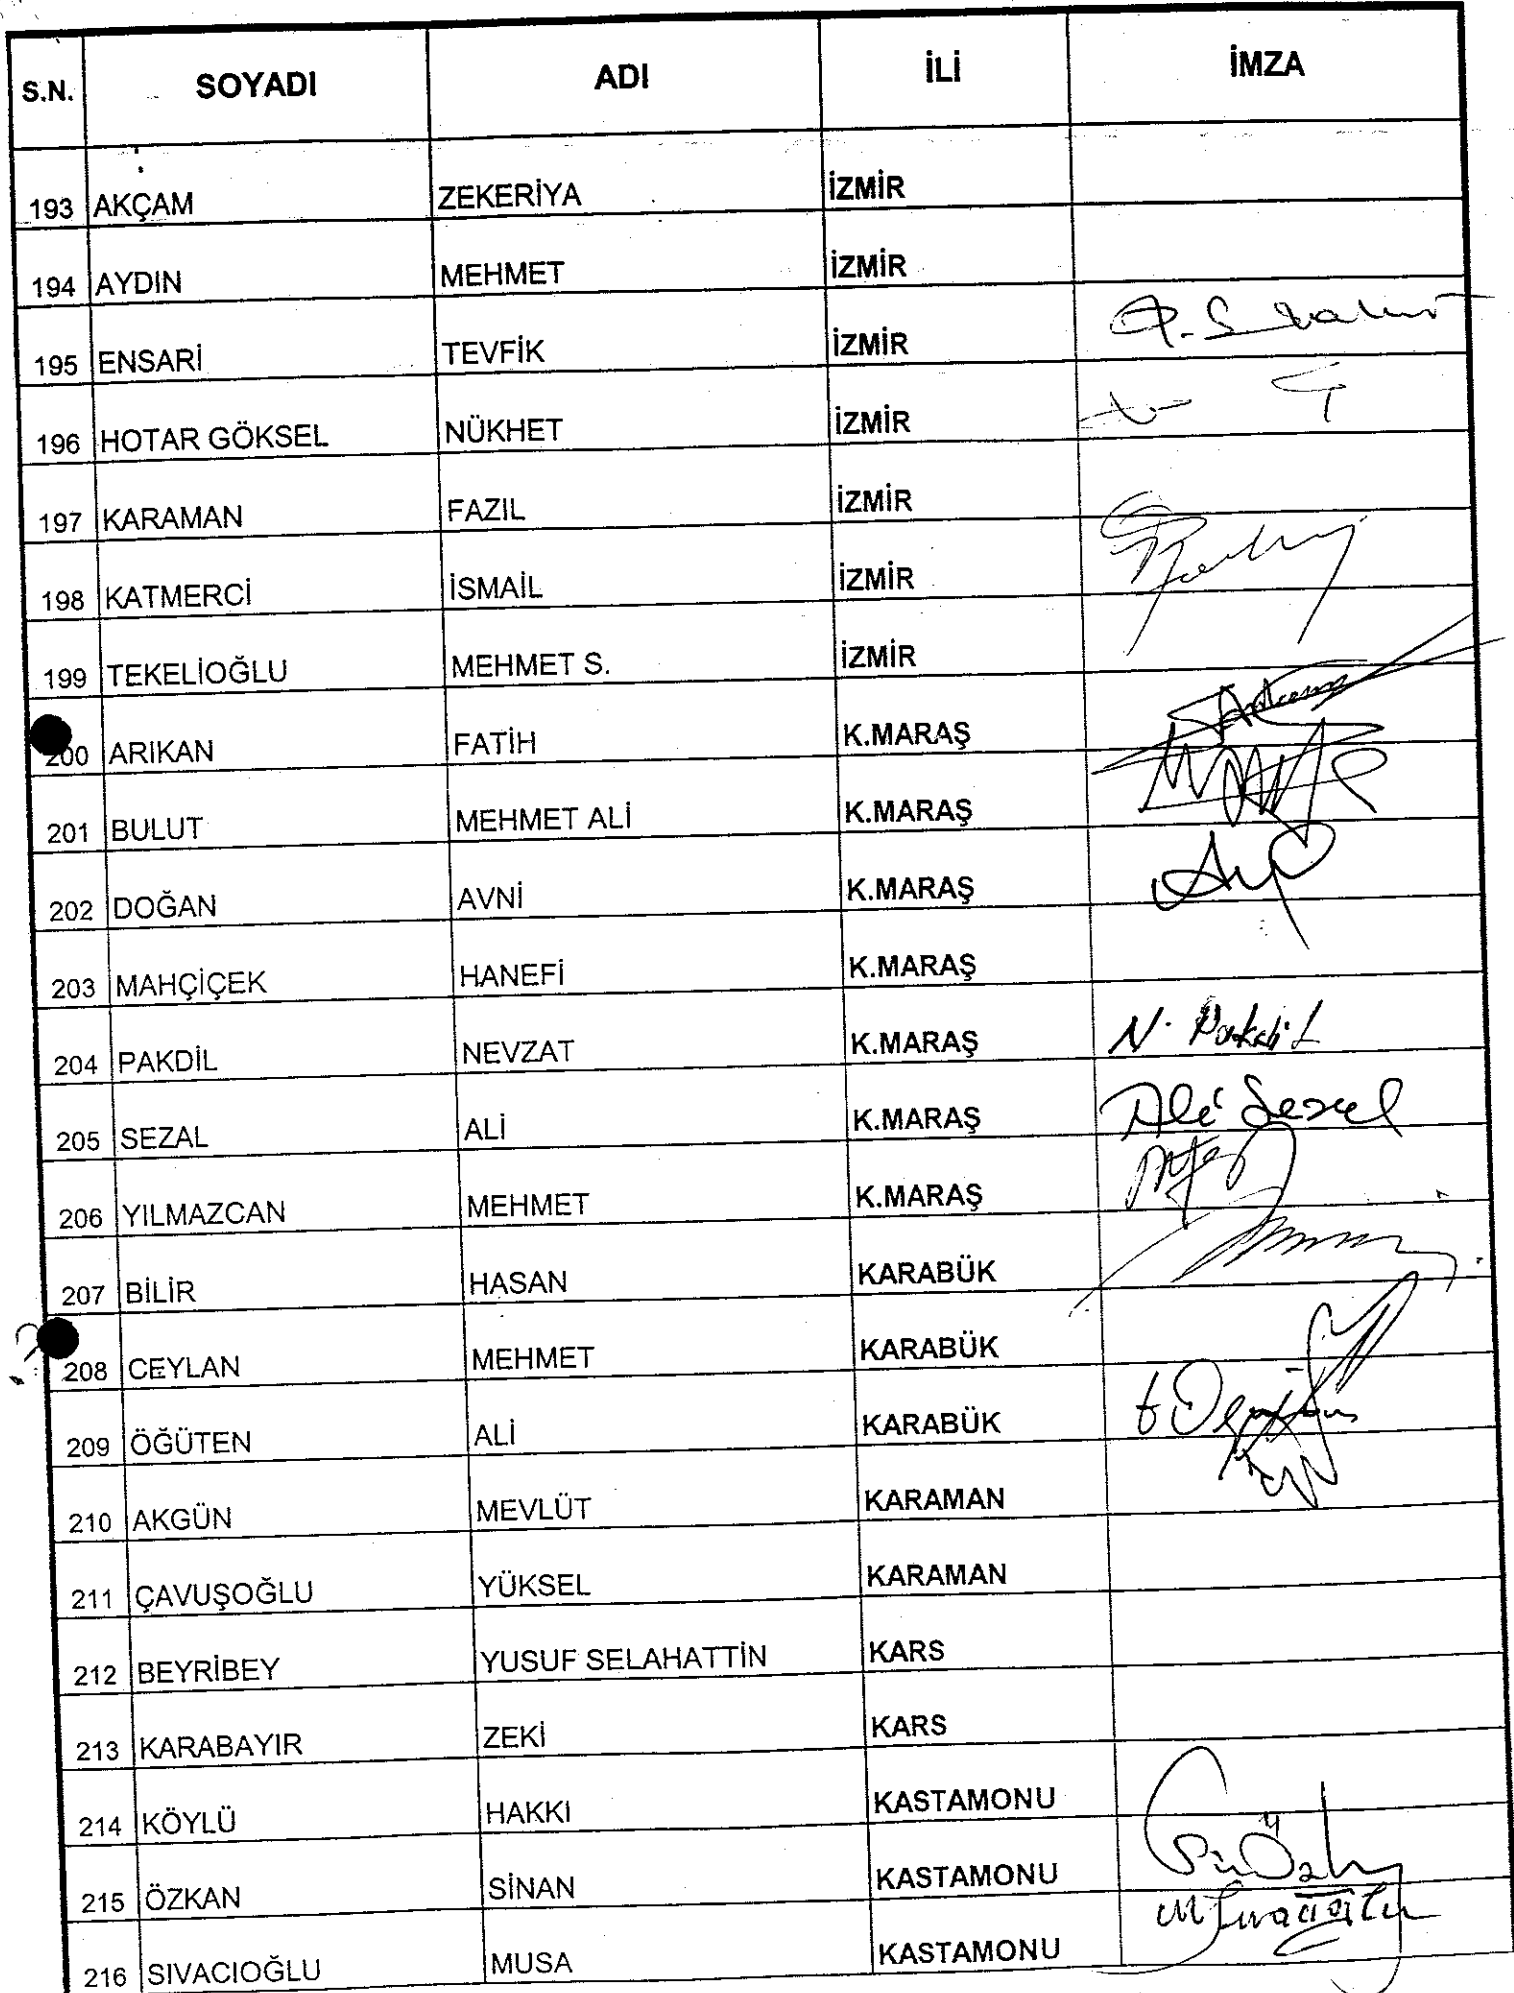 S.N. SOYADI ADI İLİ İMZA
193 AKÇAM ZEKERİYA İZMİR
194 AYDIN MEHMET İZMİR
195 ENSARİ TEVFİK İZMİR
196 HOTAR GÖKSEL NÜKHET İZMİR
197 KARAMAN FAZIL İZMİR
198 KATMERCİ İSMAİL İZMİR
199 TEKELİOĞLU MEHMET S. İZMİR
200 ARIKAN FATİH K.MARAŞ
201 BULUT MEHMET ALİ K.MARAŞ
202 DOĞAN AVNİ K.MARAŞ
203 MAHÇİÇEK HANEFİ K.MARAŞ
204 PAKDİL NEVZAT K.MARAŞ N. Pakdil
205 SEZAL ALİ K.MARAŞ Ali Sezal
206 YILMAZCAN MEHMET K.MARAŞ
207 BİLİR HASAN KARABÜK
208 CEYLAN MEHMET KARABÜK
209 ÖĞÜTEN ALİ KARABÜK
210 AKGÜN MEVLÜT KARAMAN
211 ÇAVUŞOĞLU YÜKSEL KARAMAN
212 BEYRİBEY YUSUF SELAHATTİN KARS
213 KARABAYIR ZEKİ KARS
214 KÖYLÜ HAKKI KASTAMONU
215 ÖZKAN SİNAN KASTAMONU
216 SIVACIOĞLU MUSA KASTAMONU